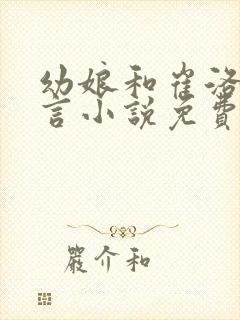 幼娘和崔洛
言小説免費
嚴介和